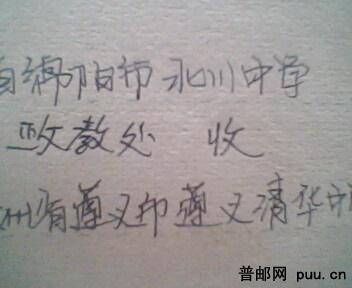 省绵阳市北川中学
政教处 收
州省遵义市遵义清华中
普邮网 puu.cn